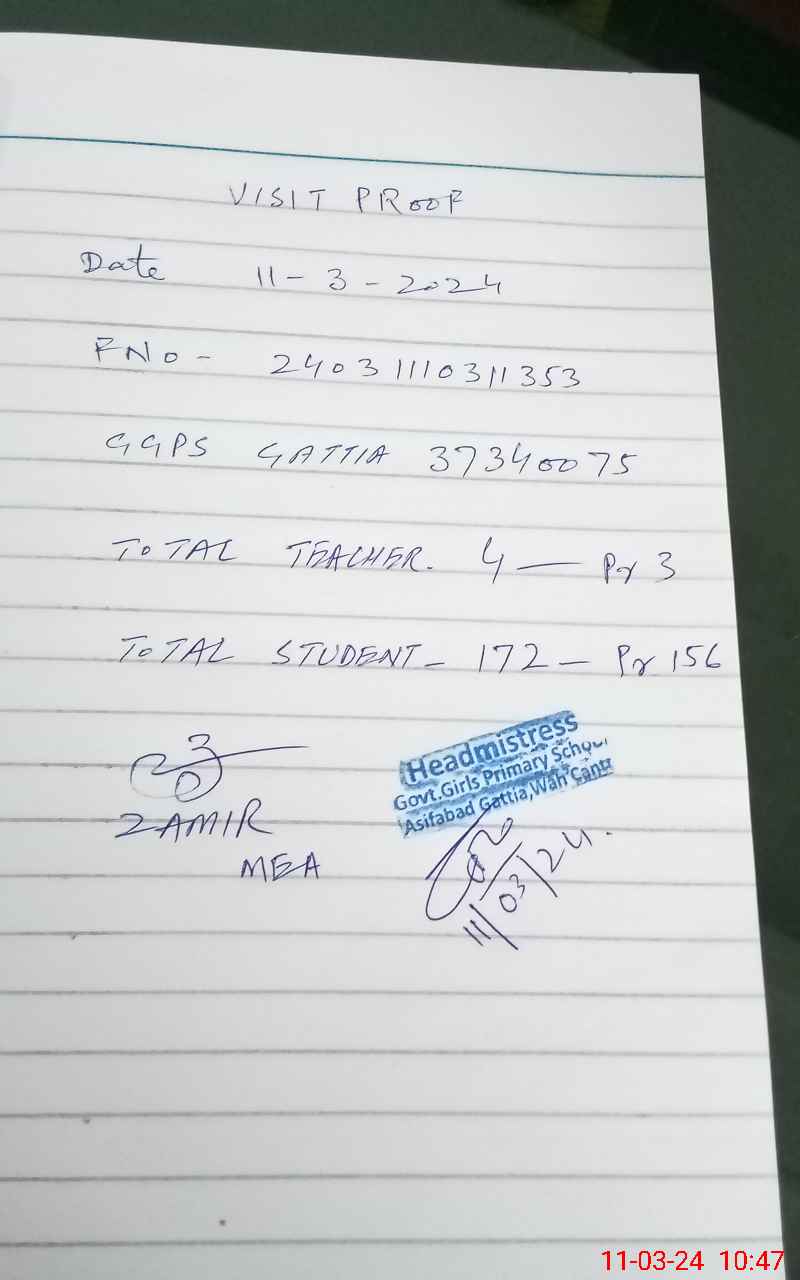 VISIT PROOF
Date 11-3-2024
FNo - 24031110311353
GGPS GATTIA 37340075
TOTAL TEACHER. 4 — Pr 3
TOTAL STUDENT - 172 - Pr 156
ZAMIR
MEA
Headmistress
Govt.Girls Primary School
Asifabad Gattia,Wah Cantt
11/03/24.
11-03-24 10:47